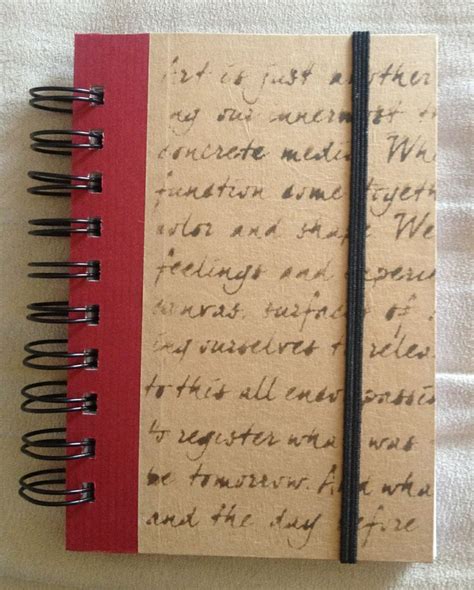 Art is just another
ing our innermost th
concrete media. Whe
function come togeth
color and shape. We
feelings and experie
canvas, surfaces of
ing ourselves to relea
to this all enco passi
to register what was
be tomorrow. And wha
and the day before